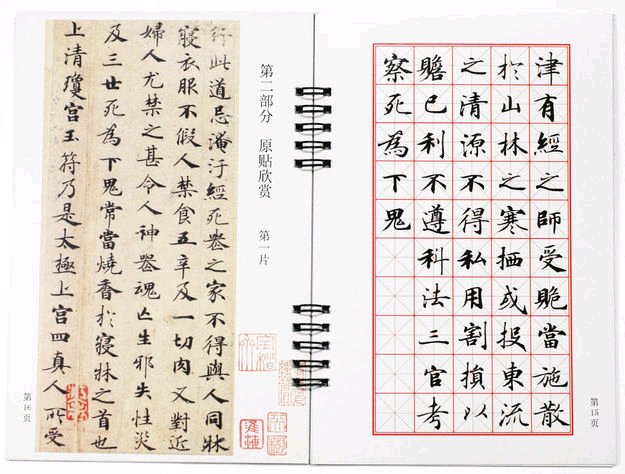 津有經之師受當施散
於山林之寒栖或投東流
之清源不得私用割損以
贍己利不遵科法三官考
察死為下鬼
第15页
第二部分 原贴欣赏 第一片
行此道忌淹汙經死喪之家不得與人同牀
寢衣服不假人禁食五辛及一切肉又對近
婦人尤禁之甚令人神喪魂亡生邪失性災
及三世死為下鬼常當燒香於寢牀之首也
上清瓊宮玉符乃是太極上宮四真人所受
第16页